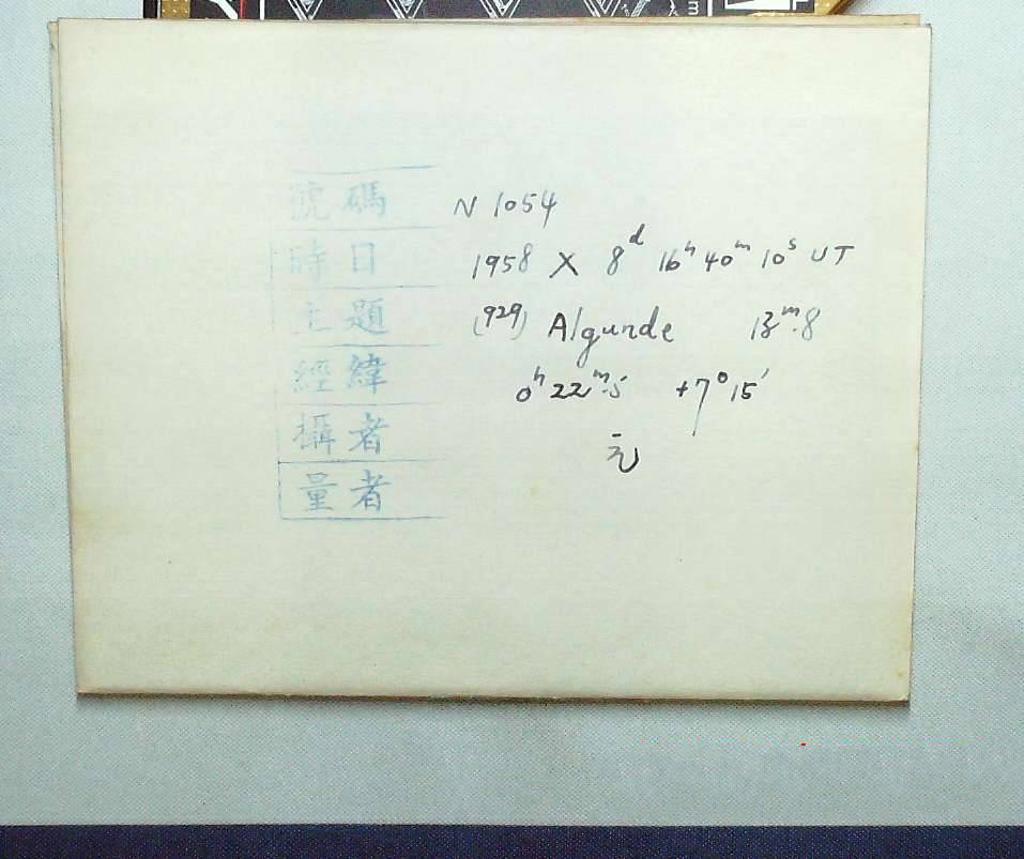 號碼 N 1054
時日 1958 X 8ᵈ 16ʰ 40ᵐ 10ˢ UT
主題 (929) Algunde 13ᵐ.8
經緯 0ʰ 22ᵐ.5 +7° 15′
攝者 元
量者